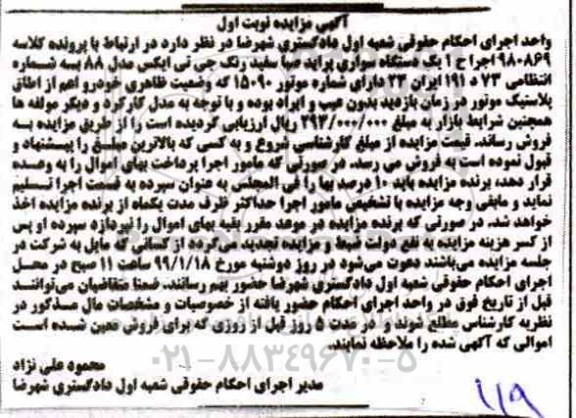 آگهی مزایده نوبت اول
واحد اجرای احکام حقوقی شعبه اول دادگستری شهرضا در نظر دارد در ارتباط با پرونده کلاسه
۹۸۰۸۶۹ اجرا ح ۱ یک دستگاه سواری پراید صبا سفید رنگ جی تی ایکس مدل ۸۸ به شماره
انتظامی ۷۳ د ۱۹۱ ایران ۲۳ دارای شماره موتور ۱۵۰۹۰ که وضعیت ظاهری خودرو اعم از اطاق
پلاستیک موتور در زمان بازدید بدون عیب و ایراد بوده و با توجه به مدل کارکرد و دیگر مولفه ها
همچنین شرایط بازار به مبلغ ۲۹۳/۰۰۰/۰۰۰ ریال ارزیابی گردیده است را از طریق مزایده به
فروش رساند. قیمت مزایده از مبلغ کارشناسی شروع و به کسی که بالاترین مبلغ را پیشنهاد و
قبول نموده است به فروش می رسد. در صورتی که مامور اجرا پرداخت بهای اموال را به وعده
قرار دهد، برنده مزایده باید ۱۰ درصد بها را فی المجلس به عنوان سپرده به قسمت اجرا تسلیم
نماید و مابقی وجه مزایده با تشخیص مامور اجرا حداکثر ظرف مدت یکماه از برنده مزایده اخذ
خواهد شد. در صورتی که برنده مزایده در موعد مقرر بقیه بهای اموال را نپردازد سپرده او پس
از کسر هزینه مزایده به نفع دولت ضبط و مزایده تجدید می‌گردد از کسانی که مایل به شرکت در
جلسه مزایده می‌باشند دعوت می‌شود در روز دوشنبه مورخ ۹۹/۱/۱۸ ساعت ۱۱ صبح در محل
اجرای احکام حقوقی شعبه اول دادگستری شهرضا حضور بهم رسانند. ضمنا متقاضیان می‌توانند
قبل از تاریخ فوق در واحد اجرای احکام حضور یافته از خصوصیات و مشخصات مال مذکور در
نظریه کارشناس مطلع شوند و در مدت ۵ روز قبل از روزی که برای فروش معین شده است
اموالی که آگهی شده را ملاحظه نمایند.
۰۲۱-۸۸۳۴۹۶۷۰-۵
محمود علی نژاد
مدیر اجرای احکام حقوقی شعبه اول دادگستری شهرضا
۱۱۹